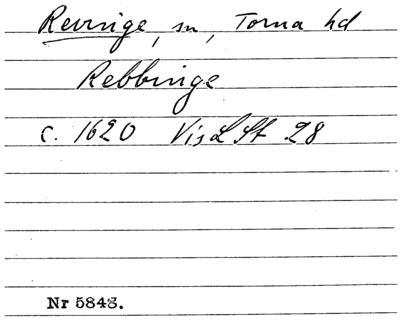 Revinge, sn, Torna hd
Rebbinge
c. 1620 Vis L St 28
Nr 5848.